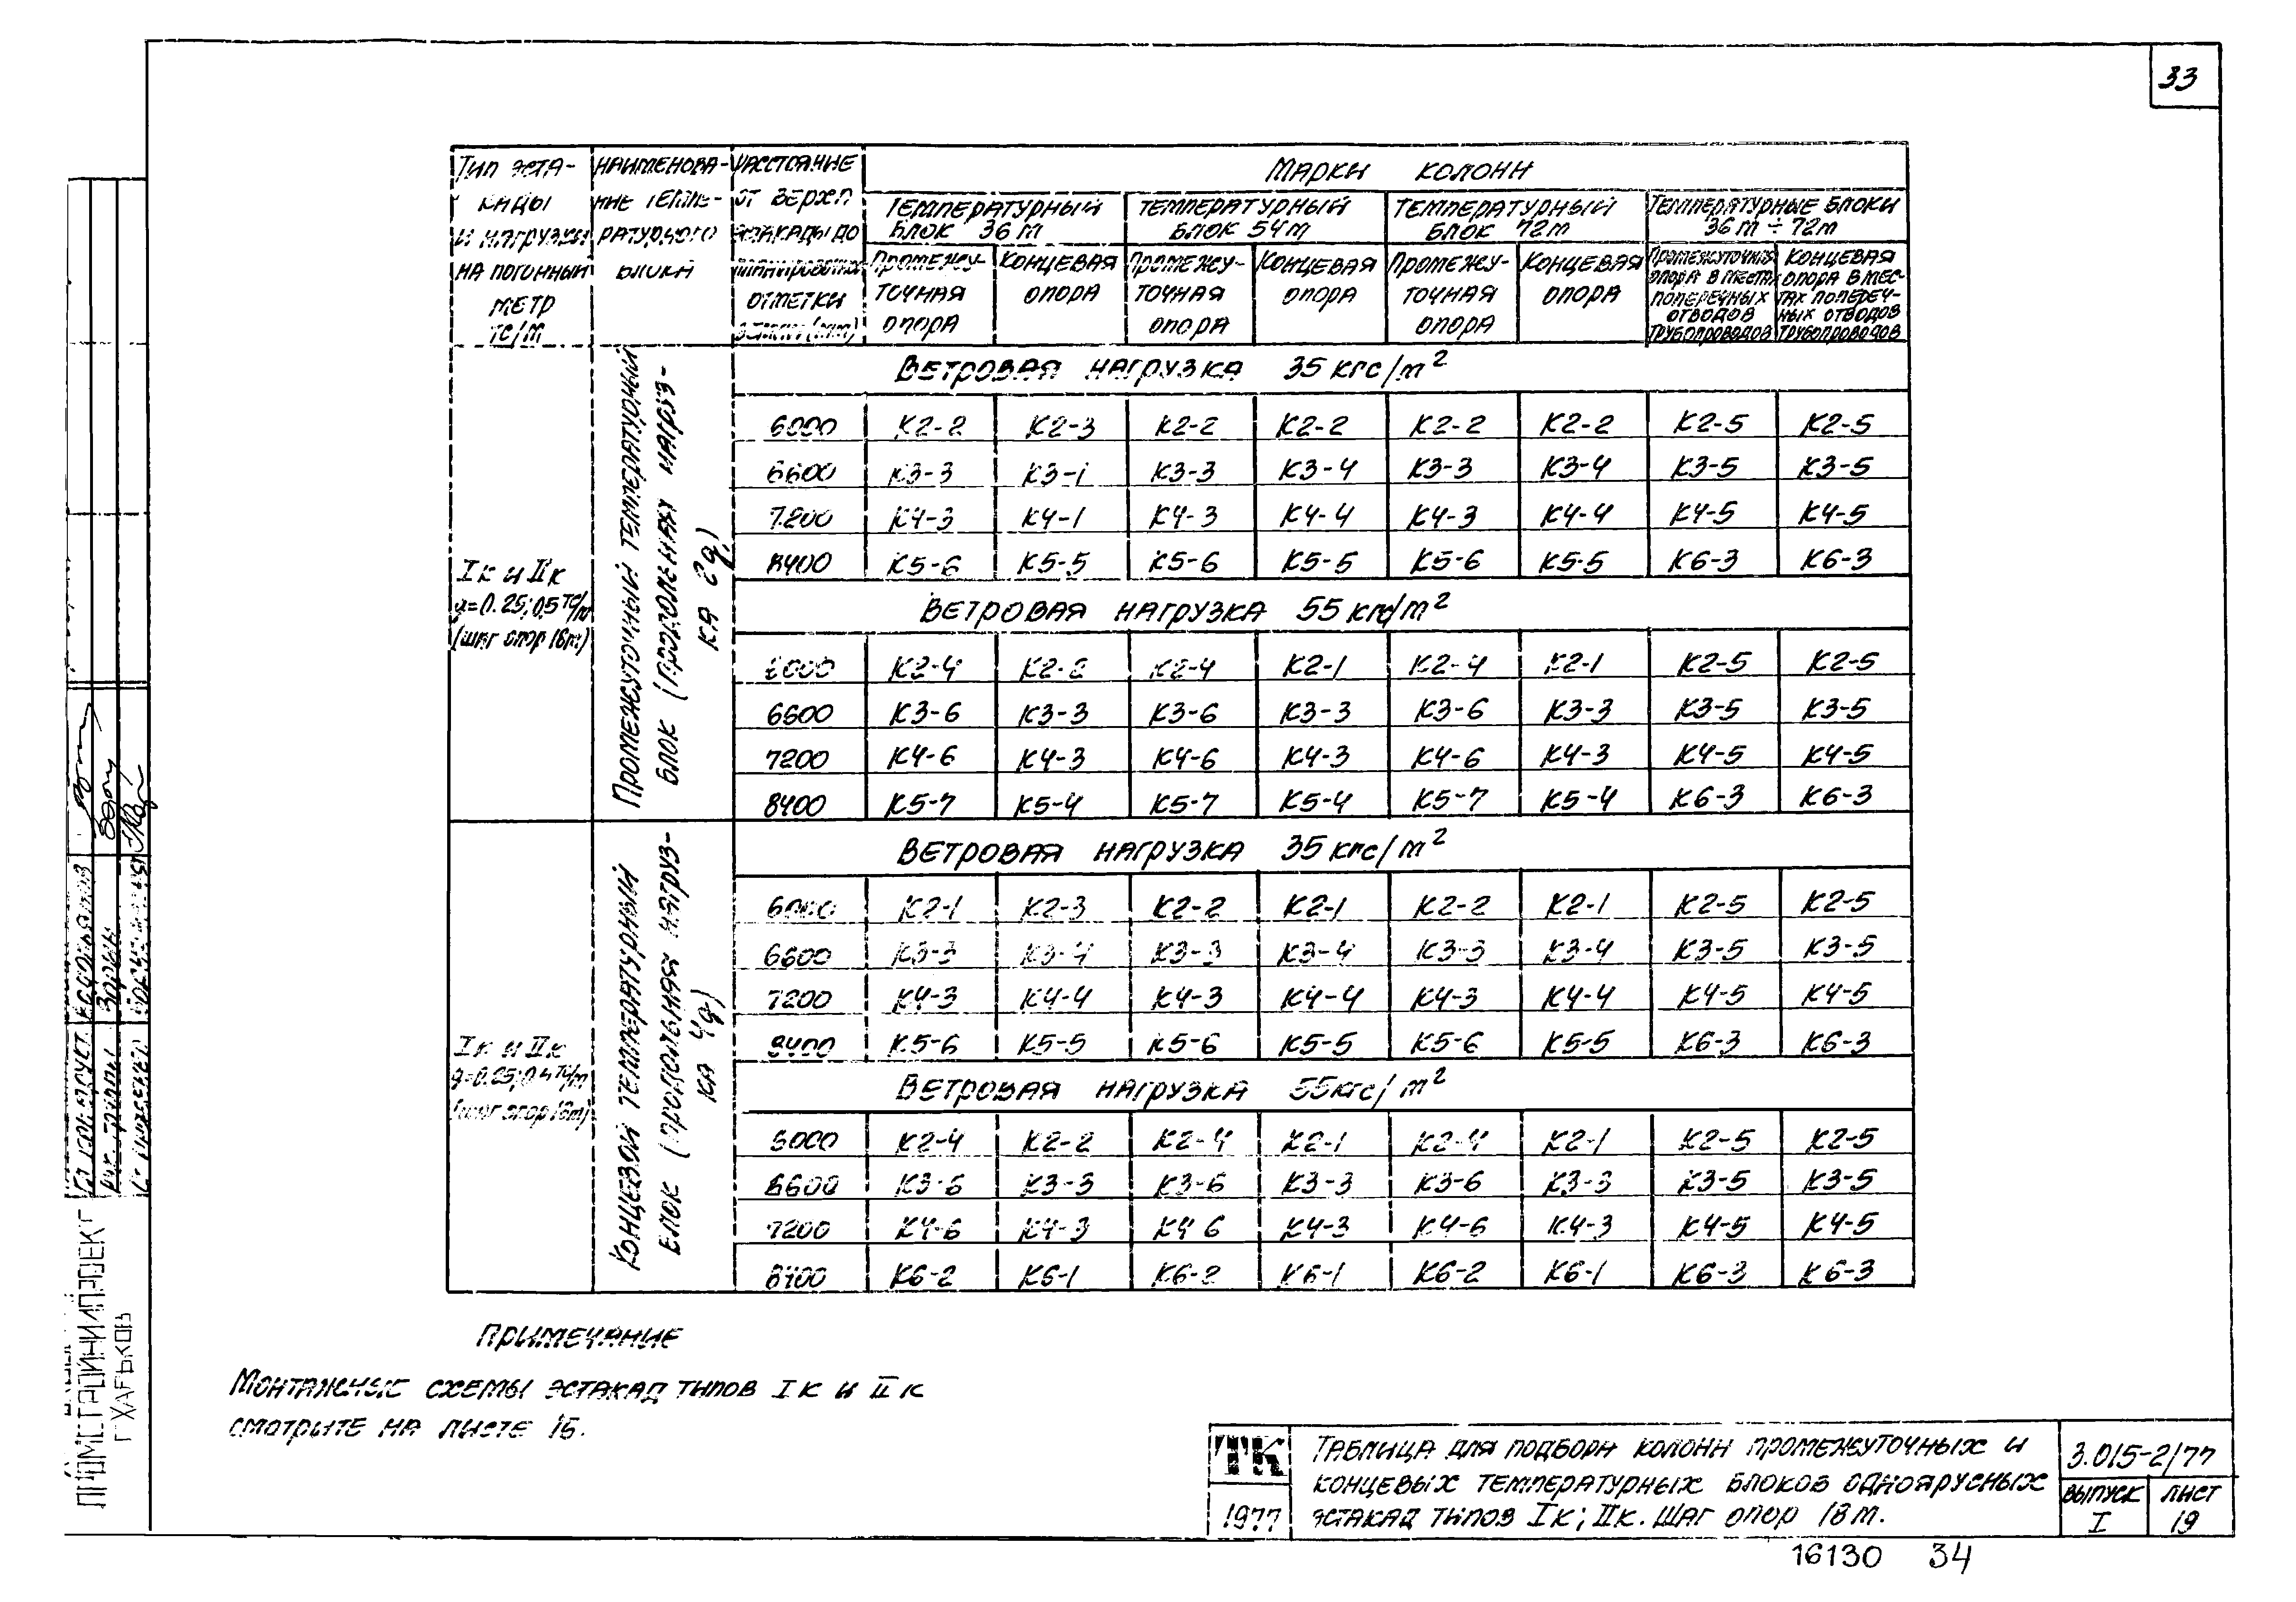 33
Тип эста-
кады
и нагрузки
на погонный
метр
тс/м
Наименова-
ние темпе-
ратурного
блока
Расстояние
от верха
эстакады до
планировочной
отметки
земли (мм)
Марки колонн
Температурный
блок 36 м
Температурный
блок 54 м
Температурный
блок 72 м
Температурные блоки
36 м ÷ 72 м
Промежу-
точная
опора
Концевая
опора
Промежу-
точная
опора
Концевая
опора
Промежу-
точная
опора
Концевая
опора
Промежуточная
опора в местах
поперечных
отводов
трубопроводов
Концевая
опора в мес-
тах попереч-
ных отводов
трубопроводов
Iк и IIк
q=0.25; 0,5 тс/м
(шаг опор 18м)
Промежуточный температурный
блок (продольная нагруз-
ка 2q)
Ветровая нагрузка 35 кгс/м²
6000 К2-2 К2-3 К2-2 К2-2 К2-2 К2-2 К2-5 К2-5
6600 К3-3 К3-1 К3-3 К3-4 К3-3 К3-4 К3-5 К3-5
7200 К4-3 К4-1 К4-3 К4-4 К4-3 К4-4 К4-5 К4-5
8400 К5-6 К5-5 К5-6 К5-5 К5-6 К5-5 К6-3 К6-3
Ветровая нагрузка 55 кгс/м²
6000 К2-4 К2-2 К2-4 К2-1 К2-4 К2-1 К2-5 К2-5
6600 К3-6 К3-3 К3-6 К3-3 К3-6 К3-3 К3-5 К3-5
7200 К4-6 К4-3 К4-6 К4-3 К4-6 К4-3 К4-5 К4-5
8400 К5-7 К5-4 К5-7 К5-4 К5-7 К5-4 К6-3 К6-3
Iк и IIк
q=0.25; 0,5 тс/м
(шаг опор 18м)
Концевой температурный
блок (продольная нагруз-
ка 4q)
Ветровая нагрузка 35 кгс/м²
6000 К2-1 К2-3 К2-2 К2-1 К2-2 К2-1 К2-5 К2-5
6600 К3-3 К3-4 К3-3 К3-4 К3-3 К3-4 К3-5 К3-5
7200 К4-3 К4-4 К4-3 К4-4 К4-3 К4-4 К4-5 К4-5
8400 К5-6 К5-5 К5-6 К5-5 К5-6 К5-5 К6-3 К6-3
Ветровая нагрузка 55 кгс/м²
6000 К2-4 К2-2 К2-4 К2-1 К2-4 К2-1 К2-5 К2-5
6600 К3-6 К3-3 К3-6 К3-3 К3-6 К3-3 К3-5 К3-5
7200 К4-6 К4-3 К4-6 К4-3 К4-6 К4-3 К4-5 К4-5
8400 К6-2 К6-1 К6-2 К6-1 К6-2 К6-1 К6-3 К6-3
Примечание
Монтажные схемы эстакад типов Iк и IIк
смотрите на листе 16.
ПРОМСТРОЙНИИПРОЕКТ
Г. ХАРЬКОВ
ТК
1977
Таблица для подбора колонн промежуточных и
концевых температурных блоков одноярусных
эстакад типов Iк; IIк. Шаг опор 18 м.
3.015-2/77
Выпуск
I
Лист
19
16130 34